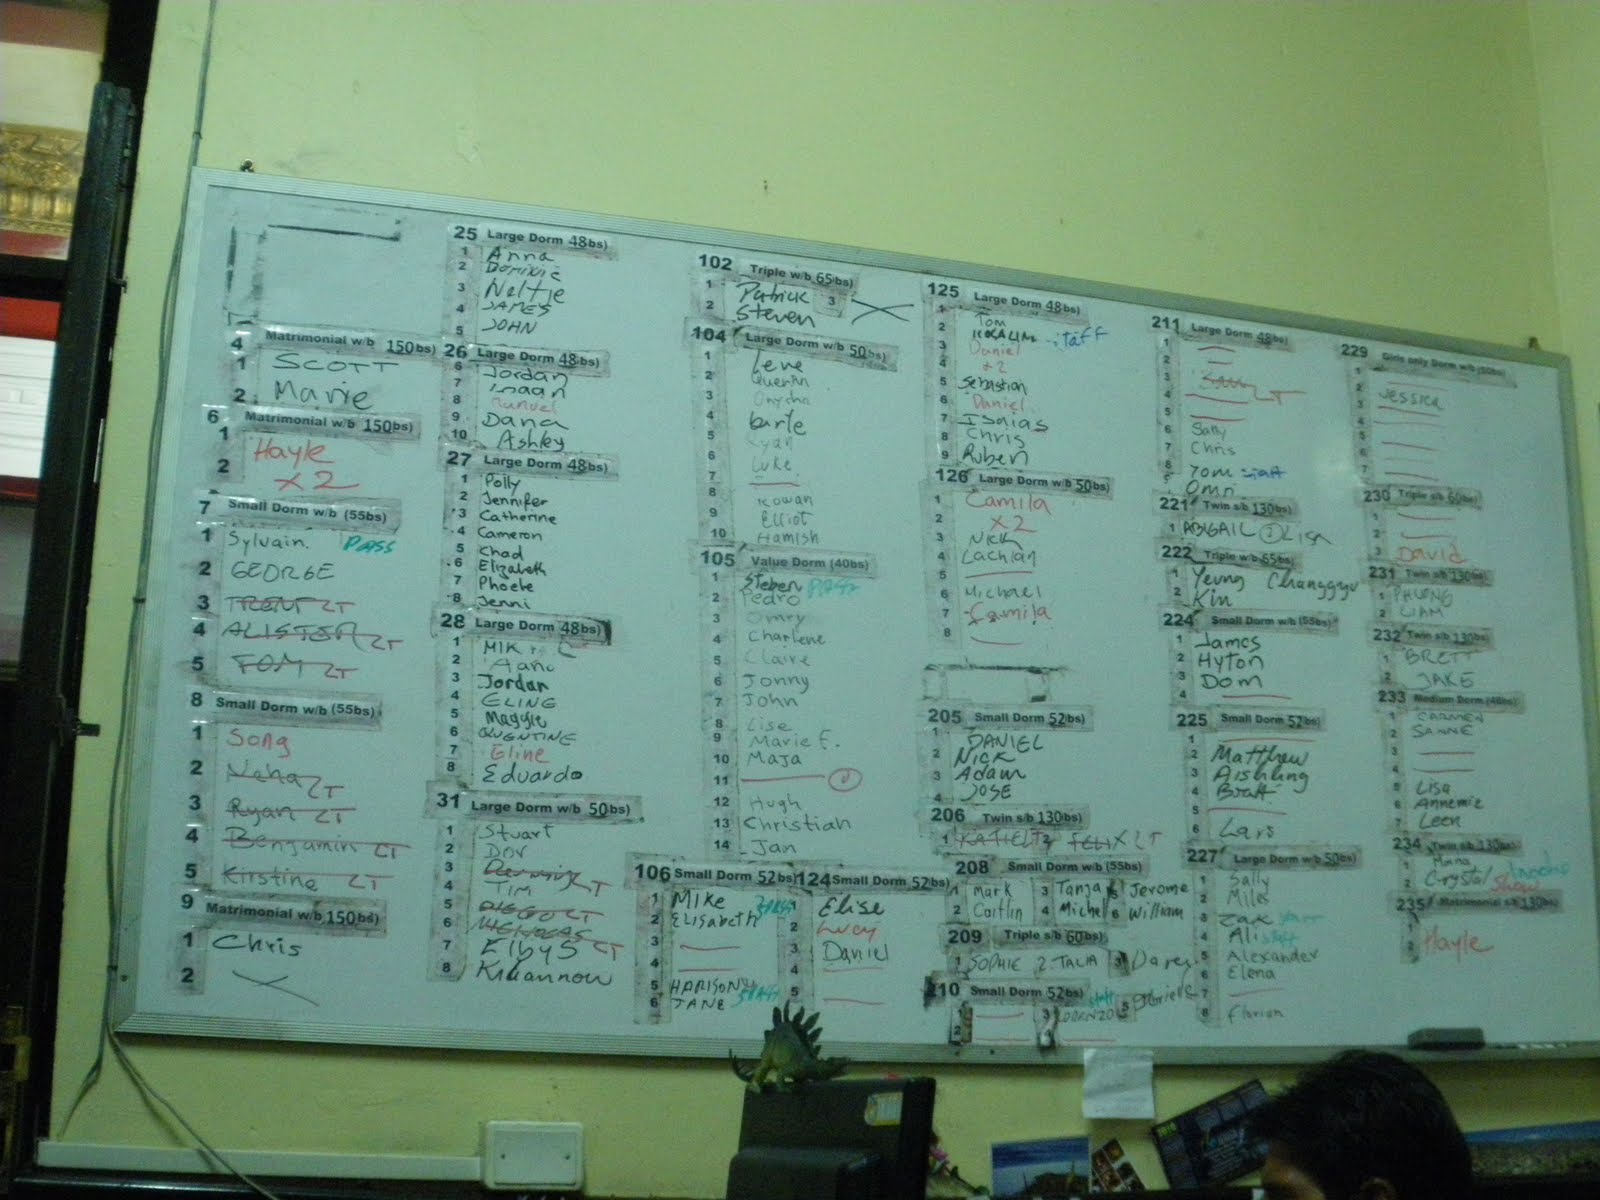 4 Matrimonial w/b 150bs)
1 SCOTT
2 Marie
6 Matrimonial w/b 150bs)
1 Hayle
2 X2
7 Small Dorm w/b (55bs)
1 Sylvain. PASS
2 GEORGE
3 TRENT LT
4 ALISTER LT
5 TOM LT
8 Small Dorm w/b (55bs)
1 Song
2 Neha LT
3 Ryan LT
4 Benjamin LT
5 Kirstine LT
9 Matrimonial w/b 150bs)
1 Chris
2
25 Large Dorm 48bs)
1 Anna
2 Dominic
3 Neltje
4 JAMES
5 JOHN
26 Large Dorm 48bs)
6 Jordan
7
8 Manuel
9 Dana
10 Ashley
27 Large Dorm 48bs)
1 Polly
2 Jennifer
3 Catherine
4 Cameron
5 Chad
6 Elizabeth
7 Phoebe
8 Jenni
28 Large Dorm 48bs)
1
2
3 Jordan
4 ELINE
5 Maggie
6 QUENTINE
7 Eline
8 Eduardo
31 Large Dorm w/b 50bs)
1 Stuart
2 DOV
3 LT
4 TIM
5 DIEGO LT
6 NICHOLAS
7 LT
8
102 Triple w/b 65bs)
1 Patrick 3
2 Steven
104 Large Dorm w/b 50bs)
1
2 Quentin
3
4
5 Ryan
6 Luke
7
8 Rowan
9 Elliot
10 Hamish
105 Value Dorm (40bs)
1 Steben PASS
2 Pedro
3 Omry
4 Charlene
5 Claire
6 Jonny
7 John
8 Lise
9 Marie F.
10 Maja
11
12 Hugh
13 Christian
14 Jan
106 Small Dorm 52bs)
1 Mike
2 ELISABETH
3
4
5 HARISON
6 JANE staff
124 Small Dorm 52bs)
1 Elise
2 Lucy
3 Daniel
4
5
125 Large Dorm 48bs)
1
2 Tom
3 staff
Daniel
4 x2
5 Sebastian
6 Daniel
7 Isaias
8 Chris
9 Ruben
126 Large Dorm w/b 50bs)
1 Camila
2 X2
3 Nick
4 Lachlan
5
6 Michael
7 Camila
8
205 Small Dorm 52bs)
1 DANIEL
2 Nick
3 Adam
4 JOSE
206 Twin s/b 130bs)
1 FELIX LT
208 Small Dorm w/b (55bs)
1 Mark 3 Tanja 5 Jerome
2 Caitlin 4 Michel 6 William
209 Triple s/b 60bs)
1 SOPHIE 2. TALIA 3
210 Small Dorm 52bs)
1 3 staff 5
2 4
211 Large Dorm 48bs)
1
2
3 LT
4
5
6 Sally
7 Chris
8 Tom staff
Omri
221 Twin s/b 130bs)
1 ABIGAIL 2 Lisa
222 Triple w/b 65bs)
1 Yeung Changgyu
2 Kin
224 Small Dorm w/b (55bs)
1 James
2 Hyton
3 Dom
4
225 Small Dorm 52bs)
1
2 Matthew
3 Aishling
4 Bratt
5
6 Lars
227 Large Dorm w/b 50bs)
1 Sally
2 Miles
3 Zak staff
4 Ali staff
5 Alexander
6 Elena
7
8 Florian
229 Girls only Dorm w/b (50bs)
1
2 Jessica
3
4
5
6
7
230 Triple s/b 60bs)
1
2
3 David
231 Twin s/b 130bs)
1 PHUONG
2 LIAM
232 Twin s/b 130bs)
1 BRETT
2 JAKE
233 Medium Dorm (48bs)
1 CARMEN
2 SANNE
3
4
5 Lisa
6 Annemie
7 Leen
234 Twin s/b 130bs)
1 Minna
2 Crystal show
235 Matrimonial s/b 130bs)
1 Hayle
2